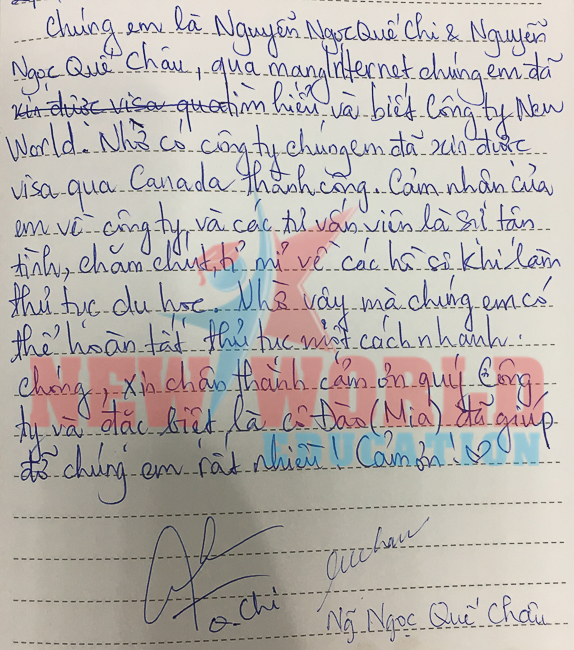 Chúng em là Nguyễn Ngọc Quế Chi & Nguyễn
Ngọc Quế Châu, qua mạng Internet chúng em đã
xin được visa qua tìm hiểu và biết Công ty New
World. Nhờ có công ty chúng em đã xin được
visa qua Canada thành công. Cảm nhận của
em về công ty và các tư vấn viên là sự tận
tình, chăm chút, tỉ mỉ về các hồ sơ khi làm
thủ tục du học. Nhờ vậy mà chúng em có
thể hoàn tất thủ tục một cách nhanh
chóng, xin chân thành cảm ơn quý Công
ty và đặc biệt là cô Đào (Mia) đã giúp
đỡ chúng em rất nhiều! Cảm ơn! ♡
NEW WORLD
EDUCATION
Q. Chi
Ng̃ Ngọc Quế Châu